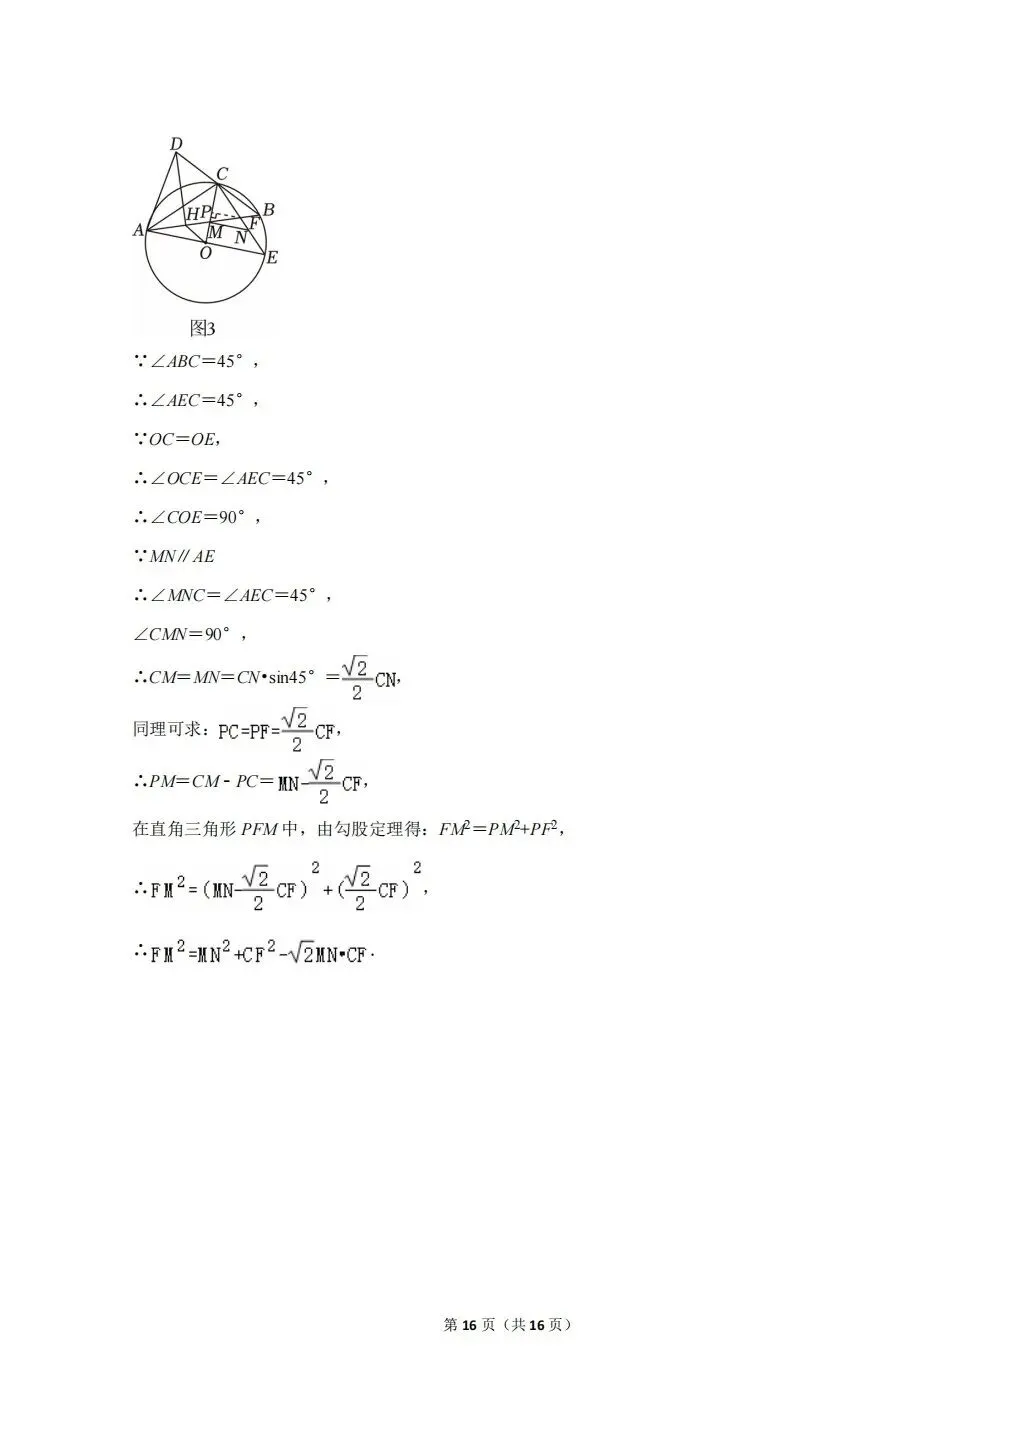 D
C
B
H P
F
A
M N
O
E
图3
∵∠ABC=45°，
∴∠AEC=45°，
∵OC=OE，
∴∠OCE=∠AEC=45°，
∴∠COE=90°，
∵MN∥AE
∴∠MNC=∠AEC=45°，
∠CMN=90°，
∴CM=MN=CN•sin45°=√2/2 CN，
同理可求：PC=PF=√2/2 CF，
∴PM=CM﹣PC=MN-√2/2 CF，
在直角三角形 PFM 中，由勾股定理得：FM²=PM²+PF²，
∴FM²=(MN-√2/2 CF)²+(√2/2 CF)²，
∴FM²=MN²+CF²-√2MN•CF．
第 16 页（共 16 页）